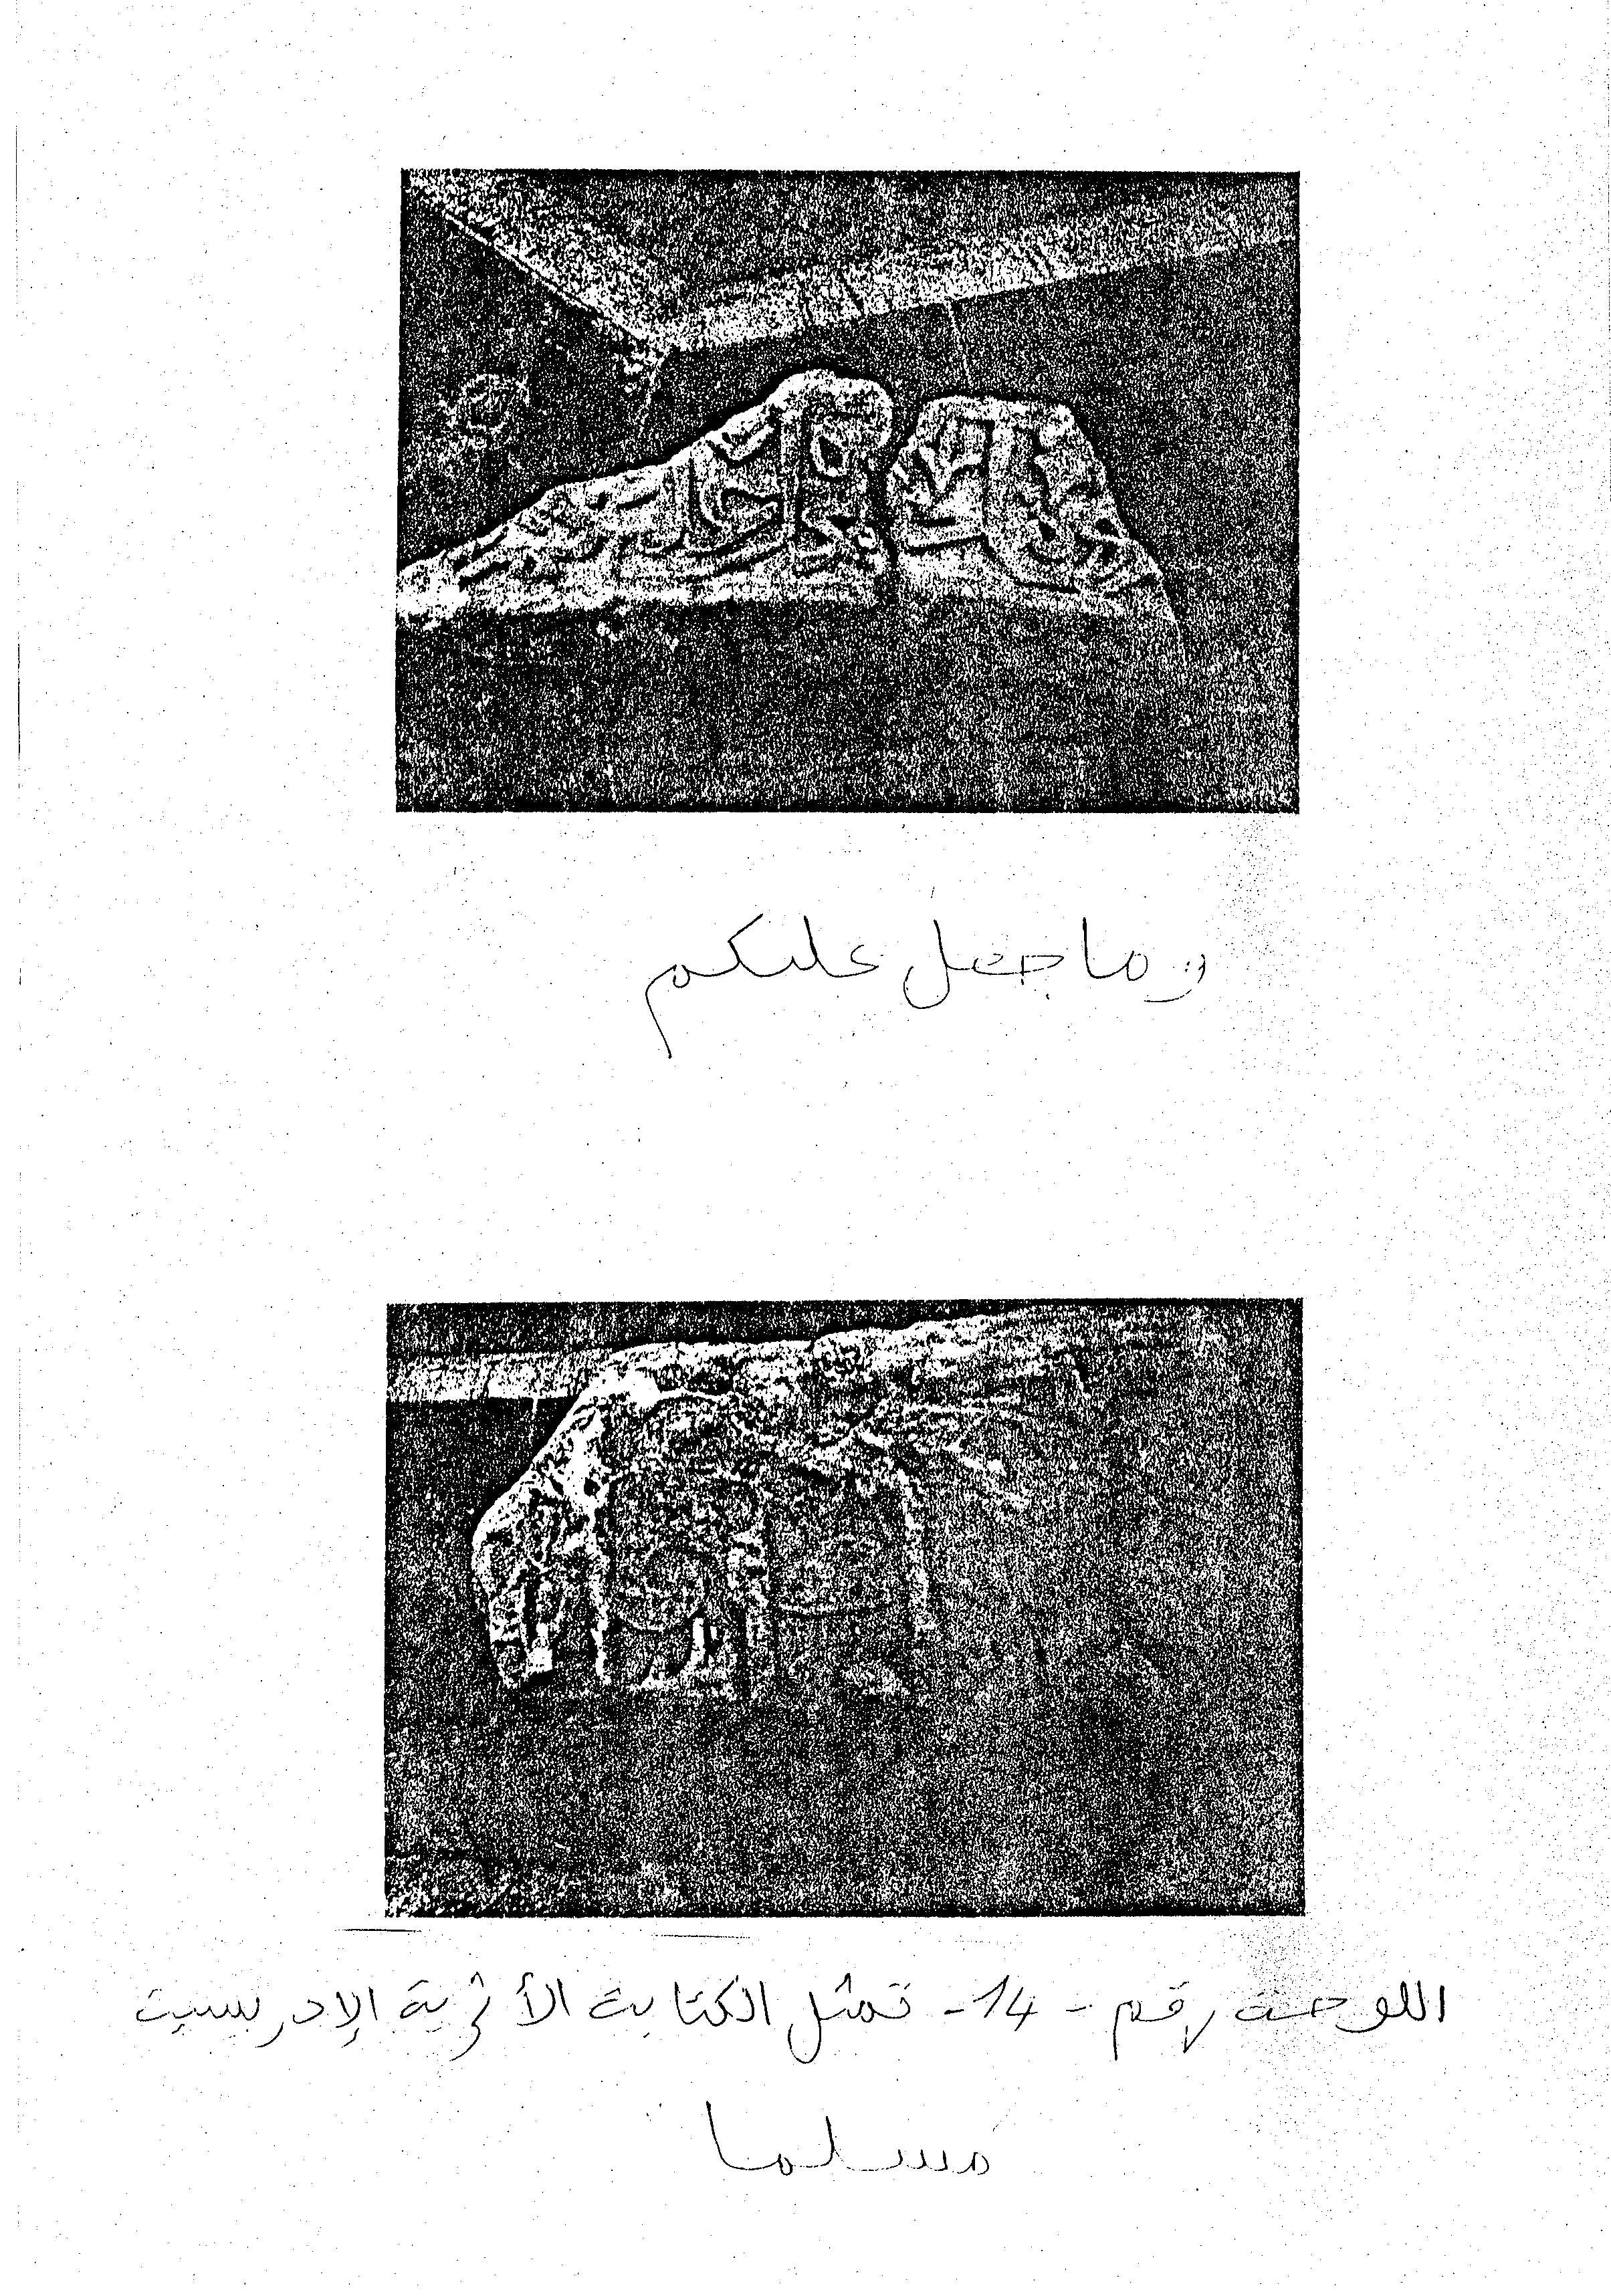 وما جعل عليكم
اللوحة رقم - 14 - تمثل الكتابة الأثرية الإدريسية
مسلما